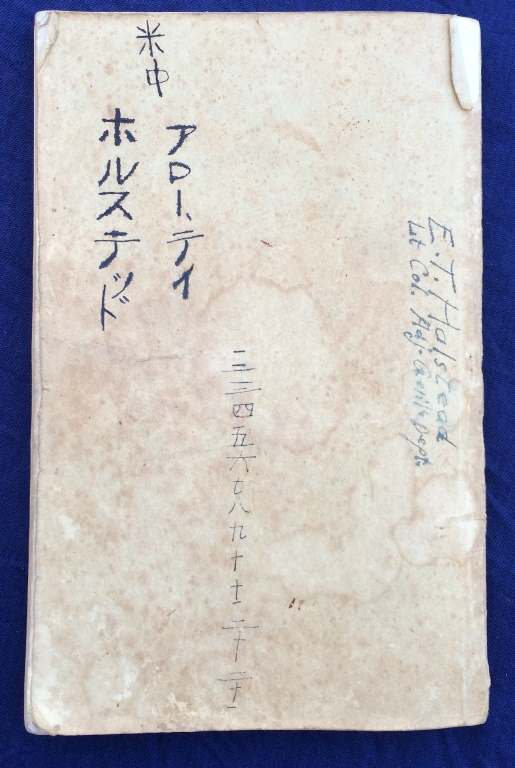 米中
アロー、テイ
ホルステッド
E.T. Halstead
Lt Col. Adj. Gen'l's Dept.
一二三四五六七八九十十一二十二十一